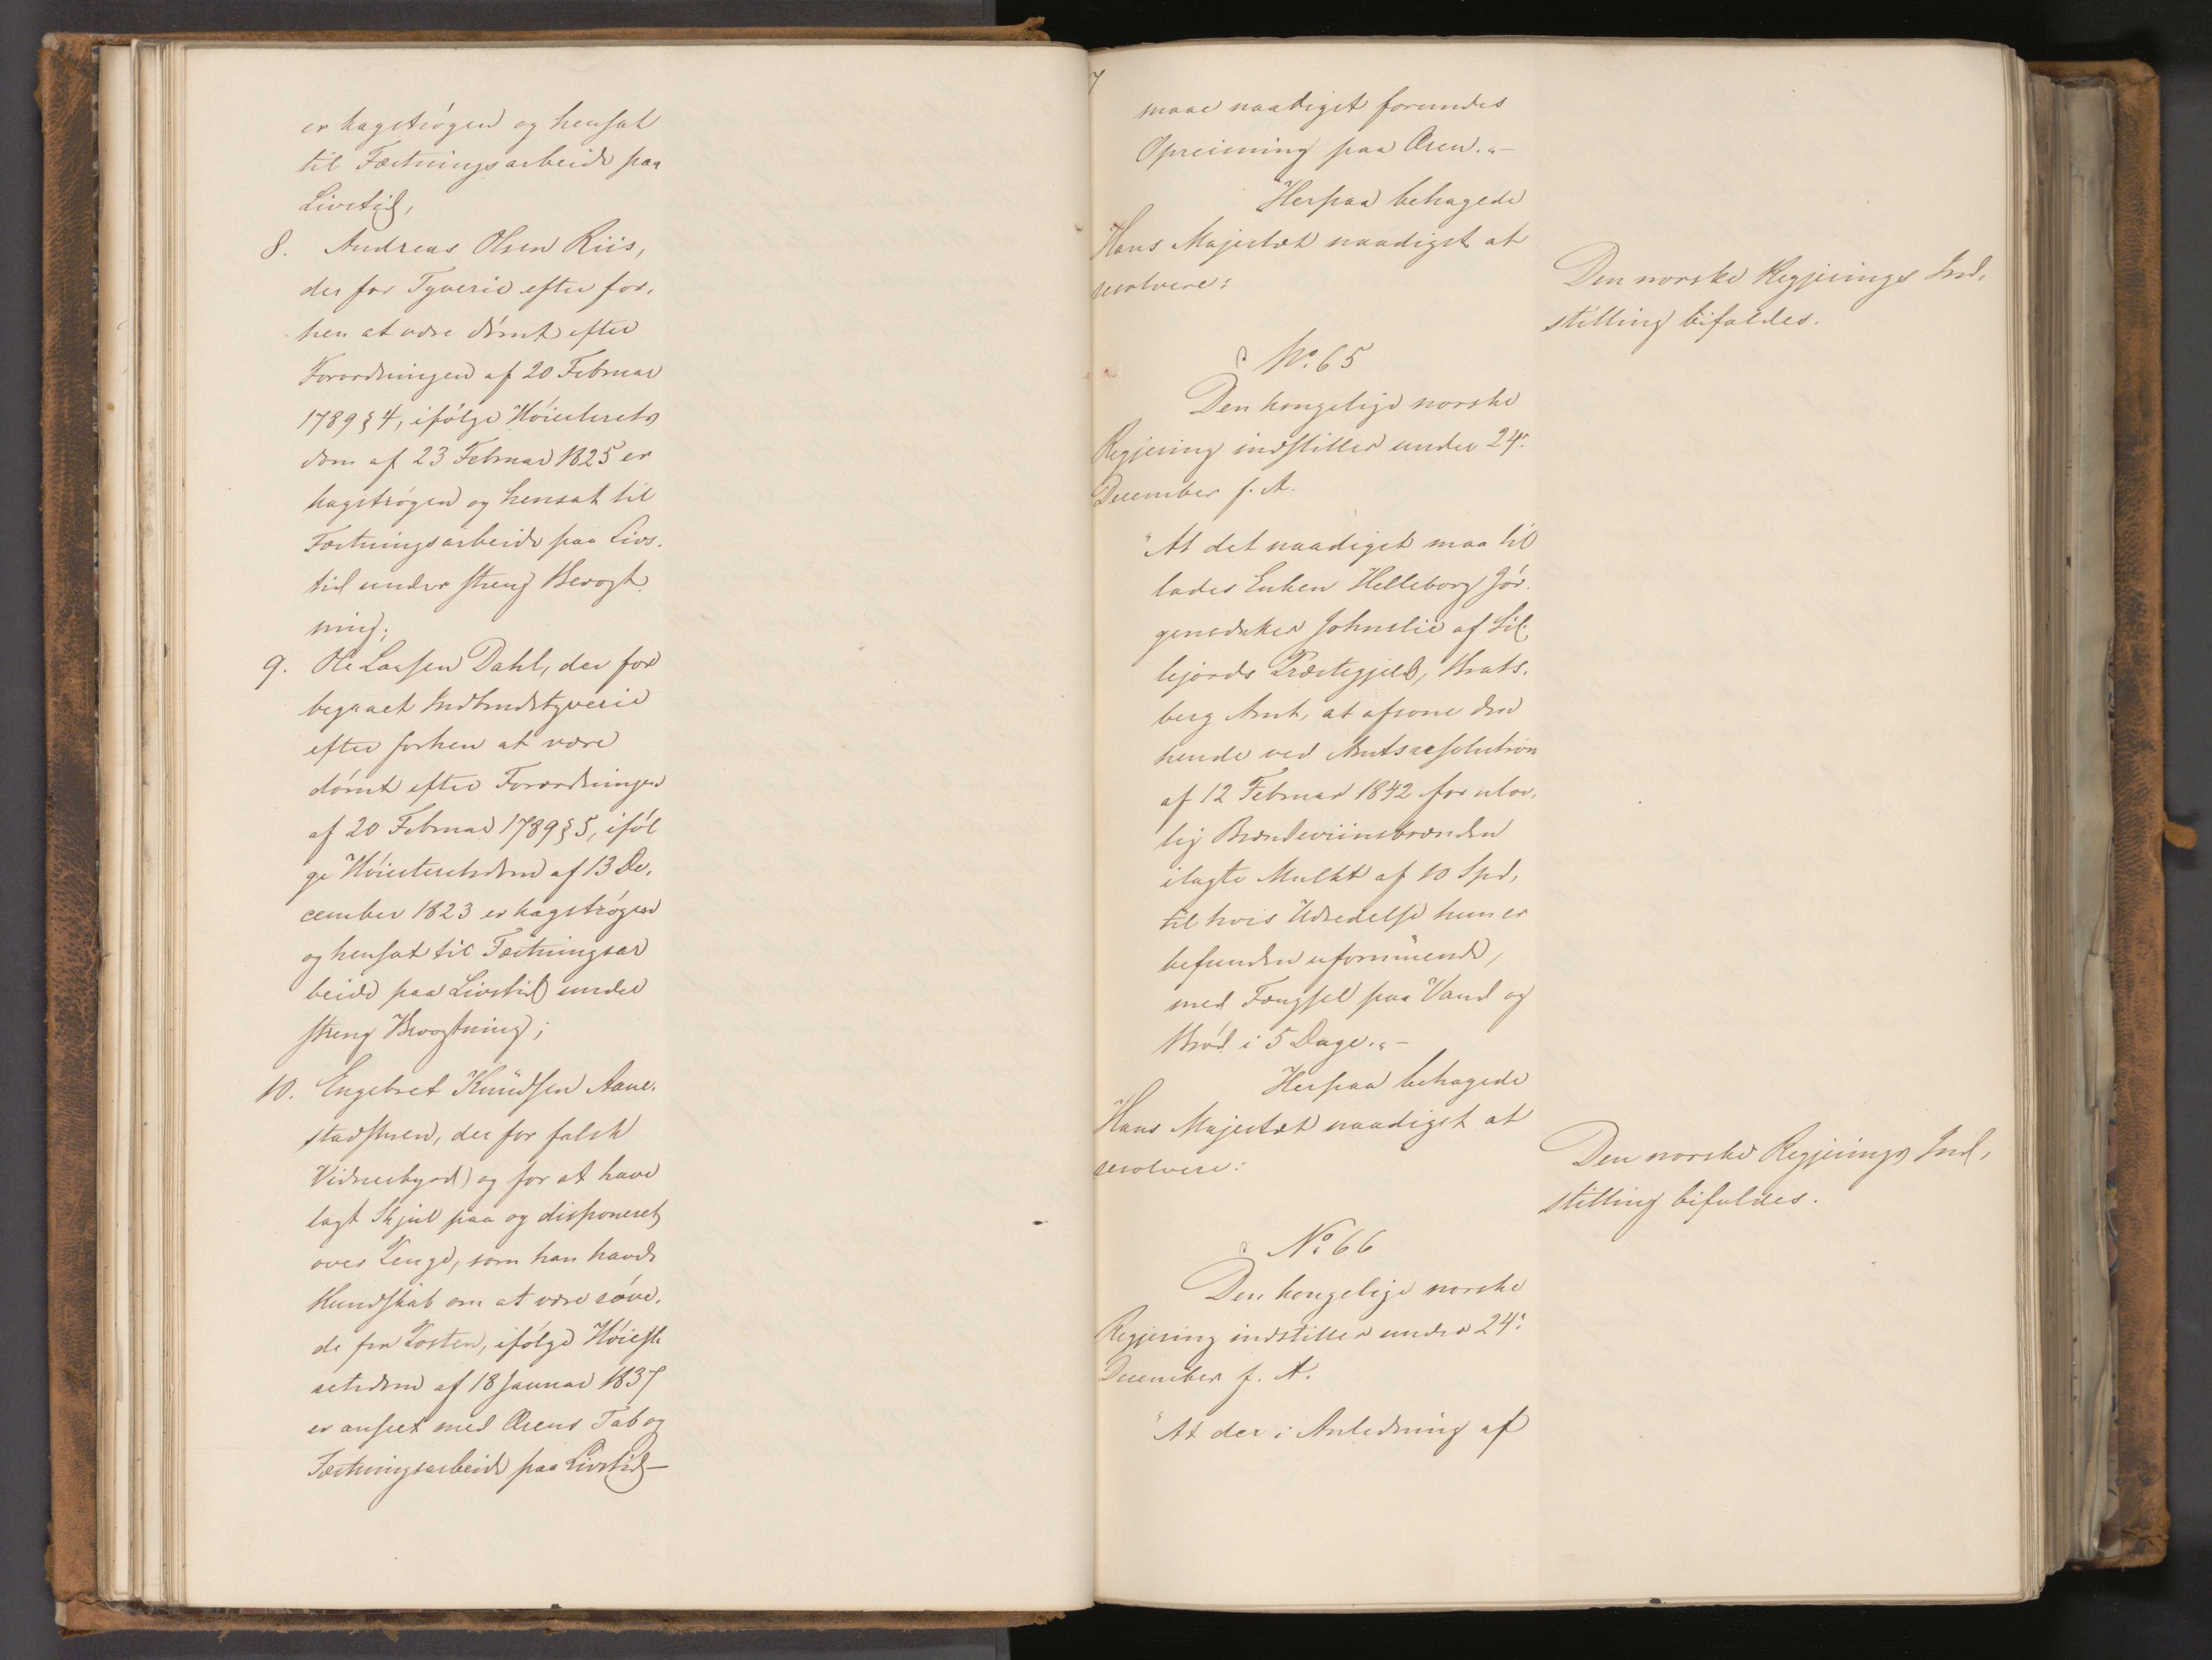 er kagstrøgen og hensat
til Fæstningsarbeide paa
Livstid,
8. Andreas Olsen Riis,
der for Tyverie efter for,
hen at være dømt efter
Forordningen af 20 Februar
1789 § 4, ifølge Høiesterets
dom af 23 Februar 1825 er
kagstrøgen og hensat til
Fæstningsarbeide paa Livs,
tid under streng Bevogt,
ning;
9. Ole Larsen Dahl, der for
begaaet Indbrudstyverie
efter forhen at være
dømt efter Forordningen
af 20 Februar 1789 § 5, iføl
ge Høiesteretsdom af 13 De,
cember 1823 er kagstrøgen
og hensat til Fæstningsar
beide paa Livstid under
streng Bevogtning;
10. Engebret Knudsen Aane,
stadstuen, der for falsk
Vidnesbyrd og for at have
lagt Skjul paa og disponeret
over Penge, som han havde
Kundskab om at være røve,
de fra Posten, ifølge Høieste
retsdom af 18 Januar 1837
er anseet med Ærens Tab og
Fæstningsarbeide paa Livstid—
7
maae naadigst forundes
Opreisning paa Æren."—
Herpaa behagede
Hans Majestæt naadigst at
resolvere:
Den norske Regjerings Ind,
stilling bifaldes.
No. 65
Den kongelige norske
Regjering indstiller under 24.
December f. A.
"At det naadigst maa til
lades Enken Helleborg Jør,
gensdatter Johnslie af Sil,
lejords Præstegjeld, Brats,
berg Amt, at afsone den
hende ved Amtsresolution
af 12 Februar 1842 for ulov,
lig Brændeviinsbrænden
ilagte Mulkt af 10 Spd,
til hvis Udredelse hun er
befunden uformuende,
med Fængsel paa Vand og
Brød i 5 Dage."—
Herpaa behagede
Hans Majestæt naadigst at
resolvere:
Den norske Regjerings Ind,
stilling bifaldes.
No. 66
Den kongelige norske
Regjering indstiller under 24.
December f. A.
"At der i Anledning af